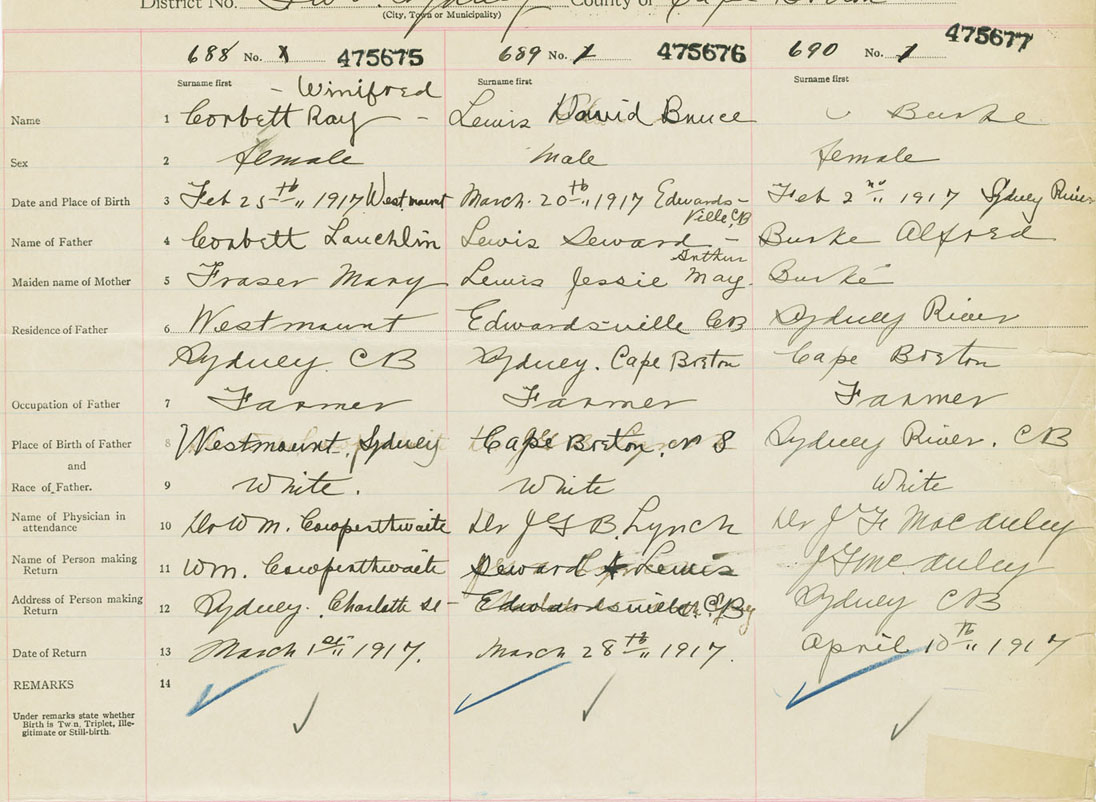 District No. Sydney County of Cape Breton
(City, Town or Municipality)
688 No. 1 475675 689 No. 1 475676 690 No. 1 475677
Surname first Surname first Surname first
- Winifred
Name 1 Corbett Ray - Lewis David Bruce Burke
Sex 2 female Male female
Date and Place of Birth 3 Feb 25th " 1917 Westmount March 20th " 1917 Edwards- Feb 2nd " 1917 Sydney River
ville, CB
Name of Father 4 Corbett Lauchlin Lewis Seward - Burke Alfred
Arthur
Maiden name of Mother 5 Fraser Mary Lewis Jessie May. Burke
Residence of Father 6 Westmount Edwardsville CB Sydney River
Sydney CB Sydney. Cape Breton Cape Breton
Occupation of Father 7 Farmer Farmer Farmer
Place of Birth of Father 8 Westmount, Sydney Cape Breton, N S Sydney River. CB
and
Race of Father. 9 White. White White
Name of Physician in
attendance 10 Dr Wm. Cowperthwaite Dr J G B. Lynch Dr J F MacAuley
Name of Person making
Return 11 Wm. Cowperthwaite Seward A Lewis J F McAuley
Address of Person making
Return 12 Sydney. Charlotte St - Edwardsville C.B Sydney CB
Date of Return 13 March 1st " 1917. March 28th " 1917. April 10th " 1917
REMARKS 14
Under remarks state whether
Birth is Twin, Triplet, Ille-
gitimate or Still-birth.